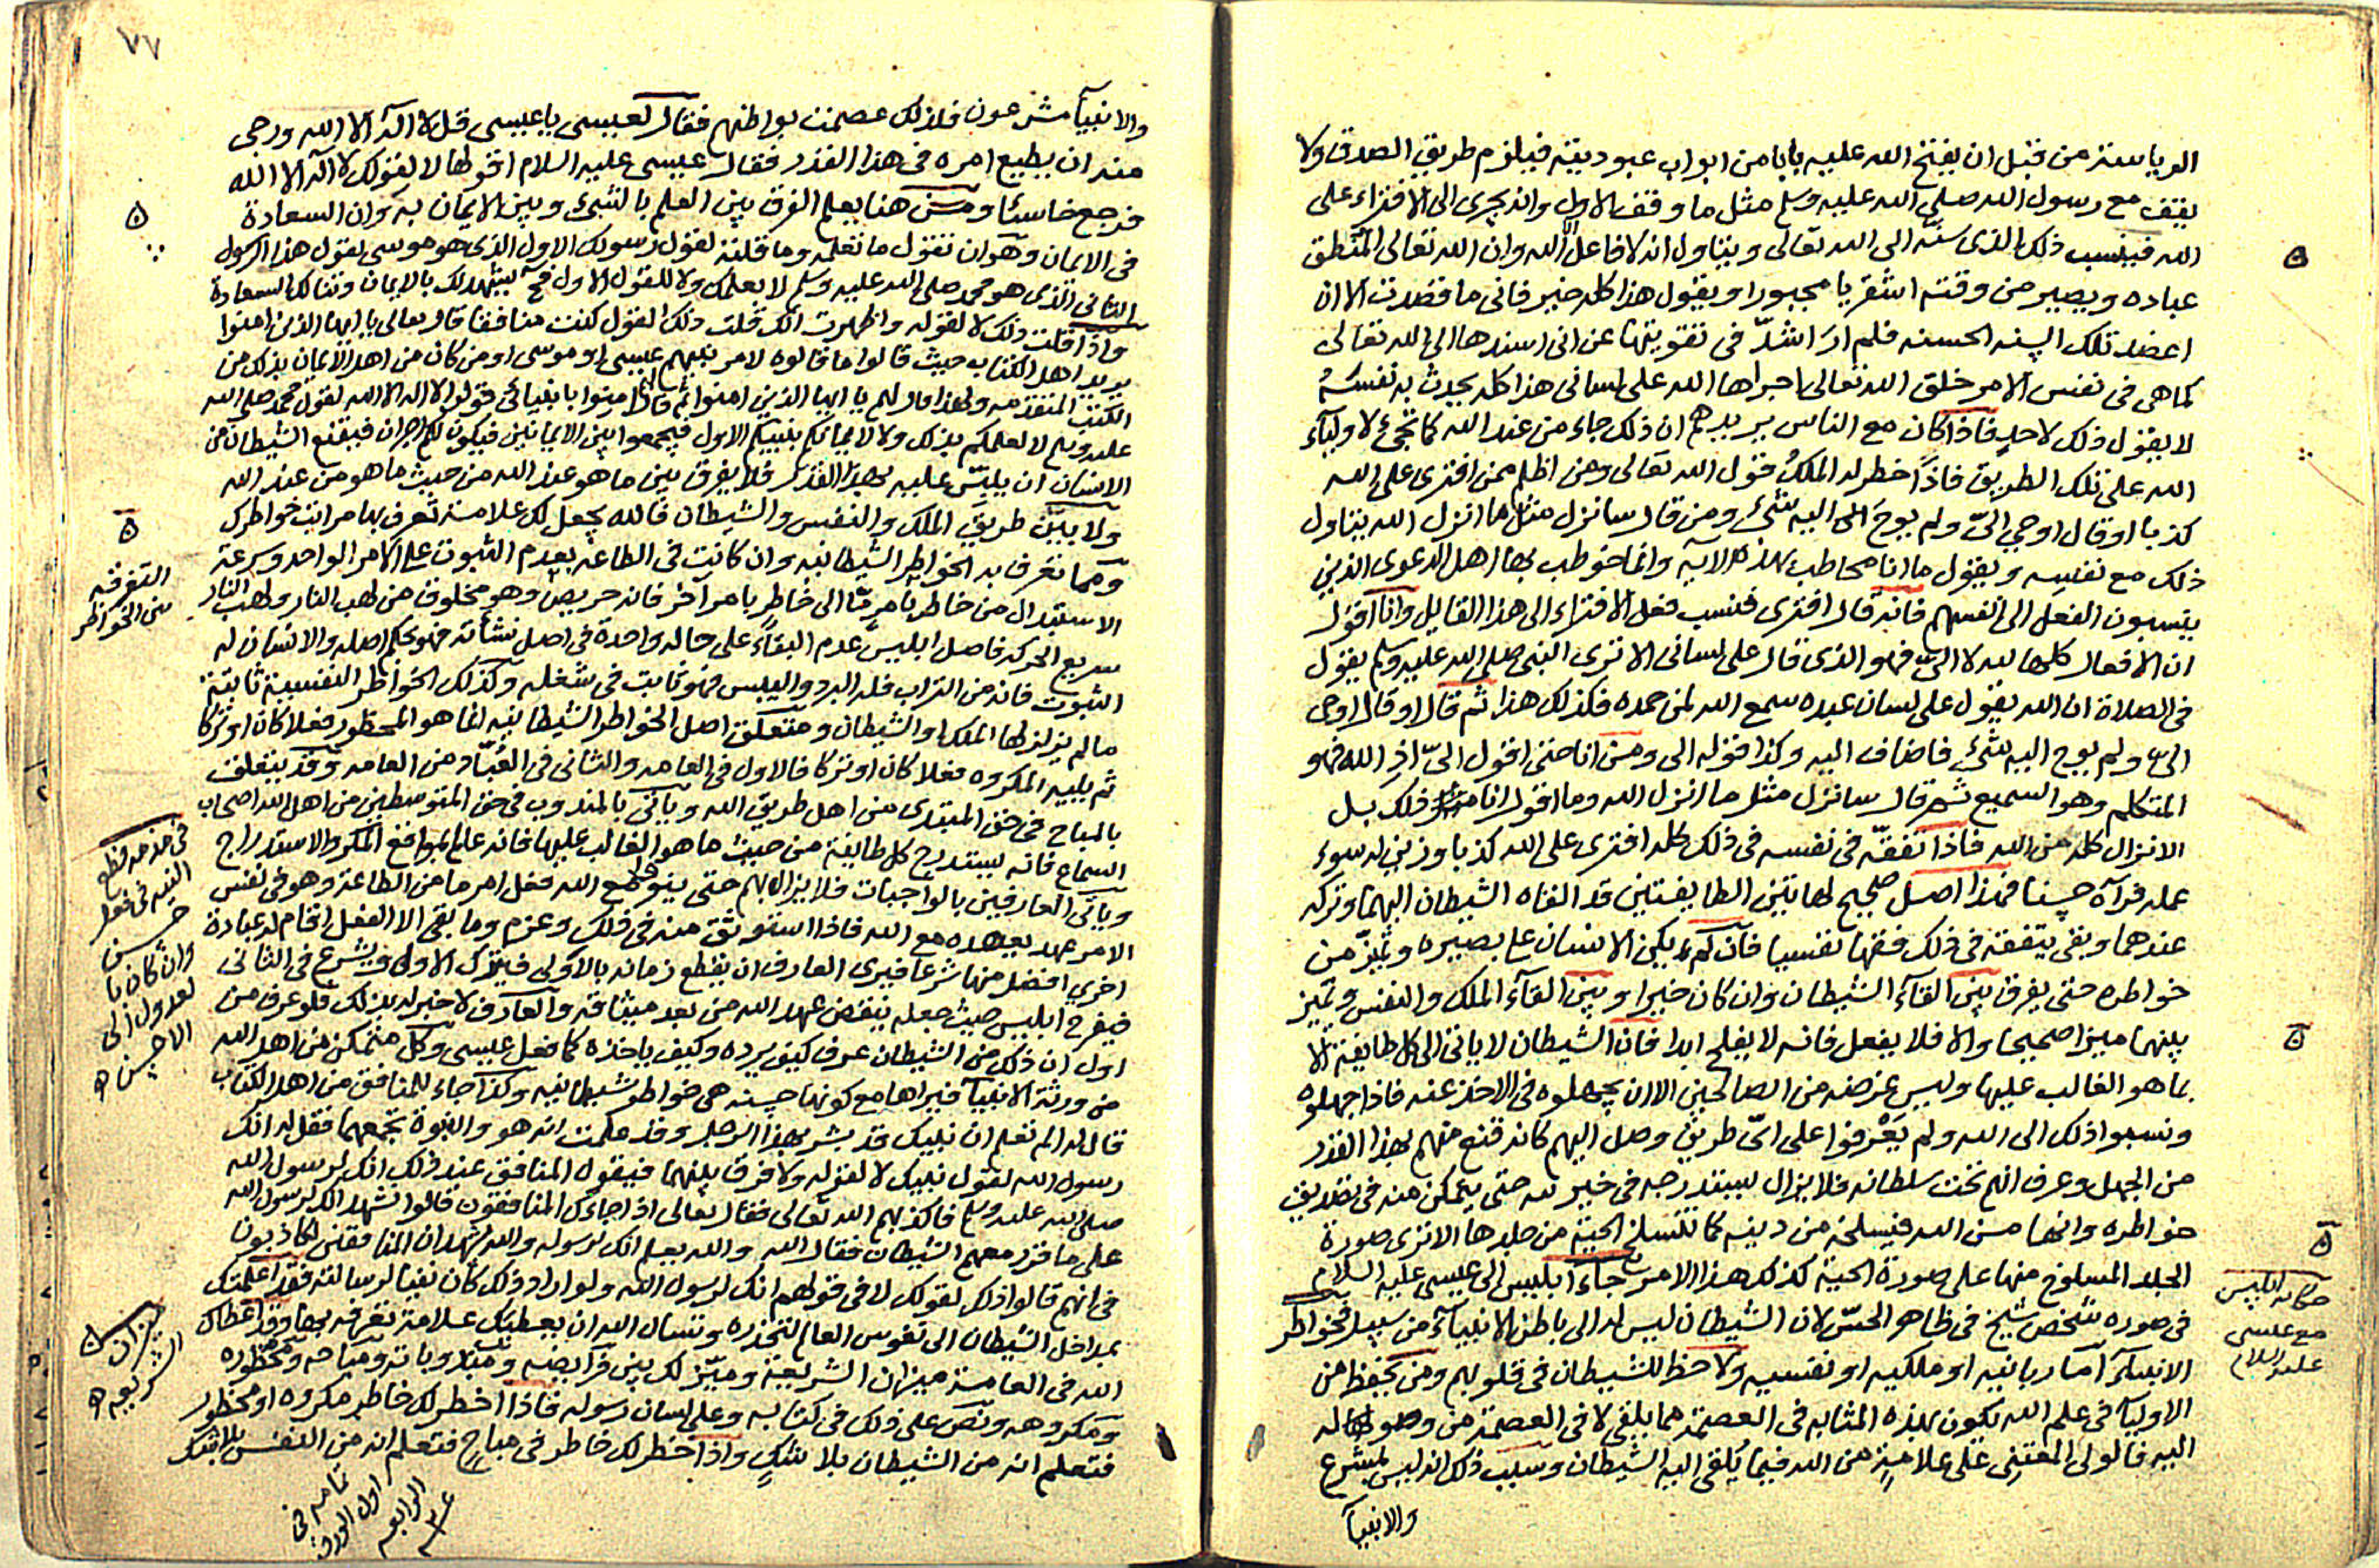 الرياسة من قبل ان يفتح الله عليه بابا من ابواب عبوديته فيلزم طريق الصدق ولا
يقف مع رسول الله صلى الله عليه وسلم مثل ما وقف الاول وانه يجرى الى الافتراء على
الله فينسب ذلك الذى سنه الى الله تعالى ويتاول انه لا فاعل الا الله وان الله تعالى المنطق
عباده ويصير من وقته اشعريا مجبورا ويقول هذا كله خير فانى ما قصدت الا ان
اعضد تلك السنه الحسنه فلم ار اشد فى تقويتها عن انى اسندها الى الله تعالى
كما هى فى نفس الامر خلق الله تعالى اجراها الله على لسانى هذا كله يحدث به نفسه
لا يقول ذلك لاحد فاذا كان مع الناس يريدهم ان ذلك جاء من عند الله كما تجئ لاولياء
الله على تلك الطريق فاذا خطر له الملك قول الله تعالى ومن اظلم ممن افترى على الله
كذبا او قال اوحى الىّ ولم يوح اليه شئ ومن قال سانزل مثل ما انزل الله يتاول
ذلك مع نفسه ويقول ما انا مخاطب بهذه الآية وانما خوطب بها اهل الدعوى الذين
ينسبون الفعل الى انفسهم فانه قال افترى فنسب فعل الافتراء الى هذا القايل وانا اقول
ان الافعال كلها لله لا الىّ فهو الذى قال على لسانى الا ترى النبى صلى الله عليه وسلم يقول
فى الصلاة ان الله يقول على لسان عبده سمع الله لمن حمده فكذلك هذا ثم قال او قال اوحى
الىّ ولم يوح اليه شئ فاضاف اليه وكذا قوله الى ومن انا حتى اقول الىّ اذ الله هو
المتكلم وهو السميع ثم قال سانزل مثل ما انزل الله وما اقول انا ذلك بل
الانزال كله من الله فاذا تفقه فى نفسه فى ذلك كله افترى على الله كذبا وزين له سوء
عمله فرآه حسنا فهذا اصل صحيح لهاتين الطايفتين قد القاه الشيطان اليهما وتركه
عندهما وبقى يتفقه فى ذلك فقها نفسيا فان لم يكن الانسان على بصيره وتميز من
خواطره حتى يفرق بين القآء الشيطان وان كان خيرا وبين القآء الملك والنفس وتميز
بينهما ميزا صحيحا والا فلا يفعل فانه لا يفلح ابدا فان الشيطان لا ياتى الى كل طايفة الا
بما هو الغالب عليها وليس غرضه من الصالحين الا ان يجهلوه فى الاخذ عنه فاذا جهلوه
ونسبوا ذلك الى الله ولم يعرفوا على اىّ طريق وصل اليهم كانه قنع منهم بهذا القدر
من الجهل وعرف انهم تحت سلطانه فلا يزال يستدرجه فى خيريته حتى يتمكن منه فى تصديق
خواطره وانها من الله فيسلخه من دينه كما تنسلخ الحية من جلدها الا ترى صورة
الجلد المسلوخ منها على صورة الحية كذلك هذا الامر جاء ابليس الى عيسى عليه السلام
فى صوره شخص شيخ فى ظاهر الحسّ لان الشيطان ليس له الى باطن الانبيآء من سبيل فخواطر
الانبيآء اما ربانيه او ملكيه او نفسيه ولا حظ للشيطان فى قلوبهم ومن يحفظ من
الاوليآء فى علم الله يكون بهذه المثابه فى العصمة مما يلقى لا فى العصمة من وصوله
اليه فالولى المعتنى على علامة من الله فيما يُلقى اليه الشيطان وسبب ذلك انه ليس بمشرع
والانبيآء
حكايه ابليس
مع عيسى
عليه السلام
٧٧
والانبيآء مشرعون فلذلك عصمت بواطنهم فقال لعيسى يا عيسى قل لا اله الا الله ورجى
منه ان يطيع امره فى هذا القدر فقال عيسى عليه السلام اقولها لا لقولك لا اله الا الله
فرجع خاسئا ومن هنا يعلم الفرق بين العلم بالشئ وبين الايمان به وان السعادة
فى الايمان وهو ان تقول ما تعلمه وما قلته لقول رسولك الاول الذى هو موسى لقول هذا الرسول
الثانى الذى هو محمد صلى الله عليه وسلم لا لعلمك ولا للقول الاول فح يشهد لك بالايمان وتنالك السعادة
واذا قلت ذلك لا لقوله واظهرت انك قلت ذلك لقول كنت منافقا قال تعالى يا ايها الذين امنوا
يريد اهل الكتاب حيث قالوا ما قالوه لامر نبيهم عيسى او موسى او من كان من اهل الايمان بذلك من
الكتب المتقدمه ولهذا قال لهم يا ايها الذين امنوا ثم قال امنوا بانبيائى قولوا لا اله الا الله لقول محمد صلى الله
عليه وسلم لا لعلمكم بذلك ولا لايمانكم بنبيكم الاول فيجمعوا بين الايمانين فيكون لهم اجران فيقنع الشيطان من
الانسان ان يلبّس عليه بهذا القدر فلا يفرق بين ما هو عند الله من حيث ما هو من عند الله
ولا بين طريق الملك والنفس والشيطان فالله يجعل لك علامة تعرف بها مراتب خواطرك
ومما تعرف به الخواطر الشيطانيه وان كانت فى الطاعه بعدم الثبوت على الامر الواحد وسرعة
الاستبدال من خاطر بامر ما الى خاطر بامر اخر فانه حريص وهو مخلوق من لهب النار ولهب النار
سريع الحركه فاصل ابليس عدم البقآء على حاله واحدة فى اصل نشأته فهو بحكم اصله والانسان له
الثبوت فانه من التراب فله البرد واليبس فهو ثابت فى شغله وكذلك الخواطر النفسية ثابتة
ما لم يزلزلها الملك او الشيطان ومتعلق اصل الخواطر الشيطانيه انما هو المحظور فعلا كان او تركا
ثم يليه المكروه فعلا كان او تركا فالاول فى العامه والثانى فى العُبّاد من العامه وقد يتعلق
بالمباح فى حق المبتدى من اهل طريق الله وياتى بالمندوب فى حق المتوسطين من اهل الله اصحاب
السماع فانه يستدرج كل طايفة من حيث ما هو الغالب عليها فانه عالم بمواقع المكر والاستدراج
وياتى العارفين بالواجبات فلا يزال بهم حتى ينوى مع الله فعل امر ما من الطاعة وهو فى نفس
الامر عهد يعهده مع الله فاذا استوثق منه فى ذلك وعزم وما بقى الا الفعل اقام له عبادة
اخرى افضل منها شرعا فيرى العارف ان يقطع زمانه بالاولى فيترك الاول ويشرع فى الثانى
فيفرح ابليس حيث جعله ينقض عهد الله من بعد ميثاقه والعارف لا خبر له بذلك فلو عرف من
اول ان ذلك من الشيطان عرف كيف يرده وكيف ياخذه كما فعل عيسى وكل متمكن من اهل الله
من ورثة الانبيآء فيراها مع كونها حسنه هى خواطر شيطانيه وكذا جاء للمنافق من اهل الكتاب
قال له الم تعلم ان نبيك قد بشر بهذا الرجل وقد علمت انه هو والنبوة تجمعهما فقل له انك
رسول الله لقول نبيك لا لقوله ولا فرق بينهما فيقول المنافق عند ذلك انك لرسول الله
صلى الله عليه وسلم فاكذبهم الله تعالى فقال تعالى اذا جاءك المنافقون قالوا نشهد انك لرسول الله
على ما قرر معهم الشيطان فقال الله والله يعلم انك لرسوله والله يشهد ان المنافقين لكاذبون
فى انهم قالوا ذلك لقولك لا فى قولهم انك لرسول الله ولو اراد ذلك كان نفيا لرسالته فقد اعلمتك
بمداخل الشيطان الى نفوس العالم لتحذره وتسال الله ان يعطيك علامة تعرفه بها وقد اعطاك
الله فى العامة ميزان الشريعة وميّز لك بين فرايضه ومندوباته ومباحه ومحظوره
ومكروهه ونص على ذلك فى كتابه وعلى لسان رسوله فاذا خطر لك خاطر مكروه او محظور
فتعلم انه من الشيطان بلا شك واذا خطر لك خاطر فى مباح فتعلم انه من النفس بلا شك
التفرقه
بين الخواطر
ميزان
الشريعه
تمامه فى
اول الورق
الرابعه